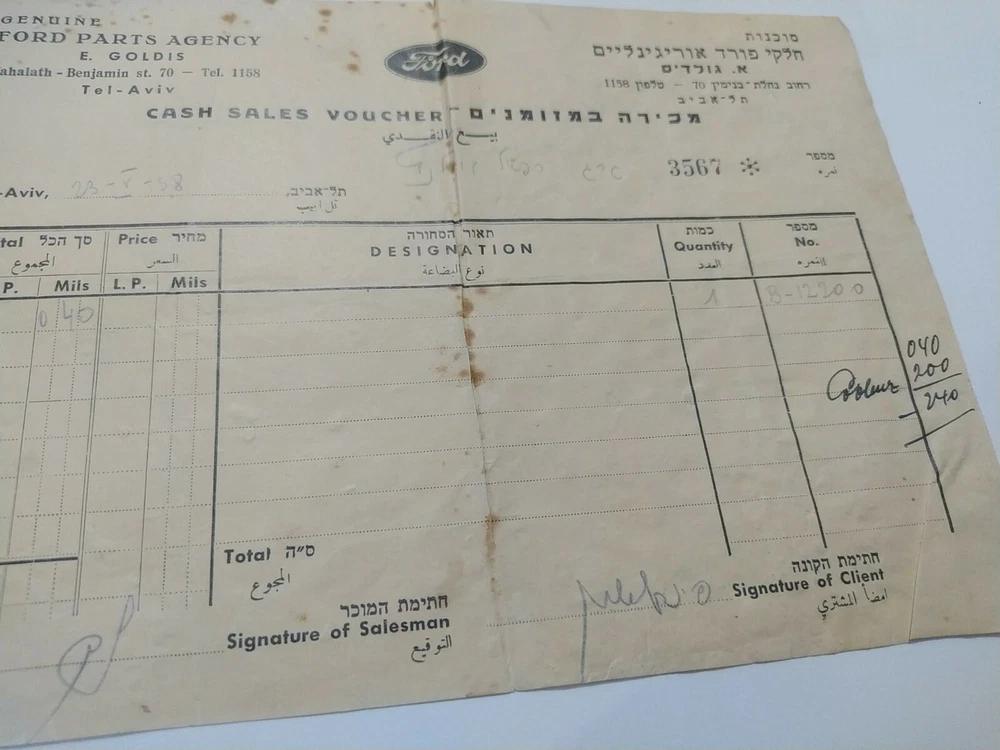 GENUINE
FORD PARTS AGENCY
E. GOLDIS
ahalath - Benjamin st. 70 — Tel. 1158
Tel-Aviv
Ford
סוכנות
חלקי פורד אוריגינליים
א. גולדיס
רחוב נחלת-בנימין 70 — טלפון 1158
תל-אביב
CASH SALES VOUCHER מכירה במזומנים
بيع النقدي
3567 ✻ מספר
نمره
-Aviv, 23-V-38 תל-אביב,
تل ابيب
tal סך הכל Price מחיר תאור הסחורה כמות מספר
DESIGNATION Quantity No.
المجموع السعر نوع البضاعة العدد النمره
P. Mils L. P. Mils
0 40 1 B-12200
040
200
240
Total ס״ה
المجوع
חתימת המוכר
Signature of Salesman
التوقيع
חתימת הקונה
Signature of Client
امضأ المشتري